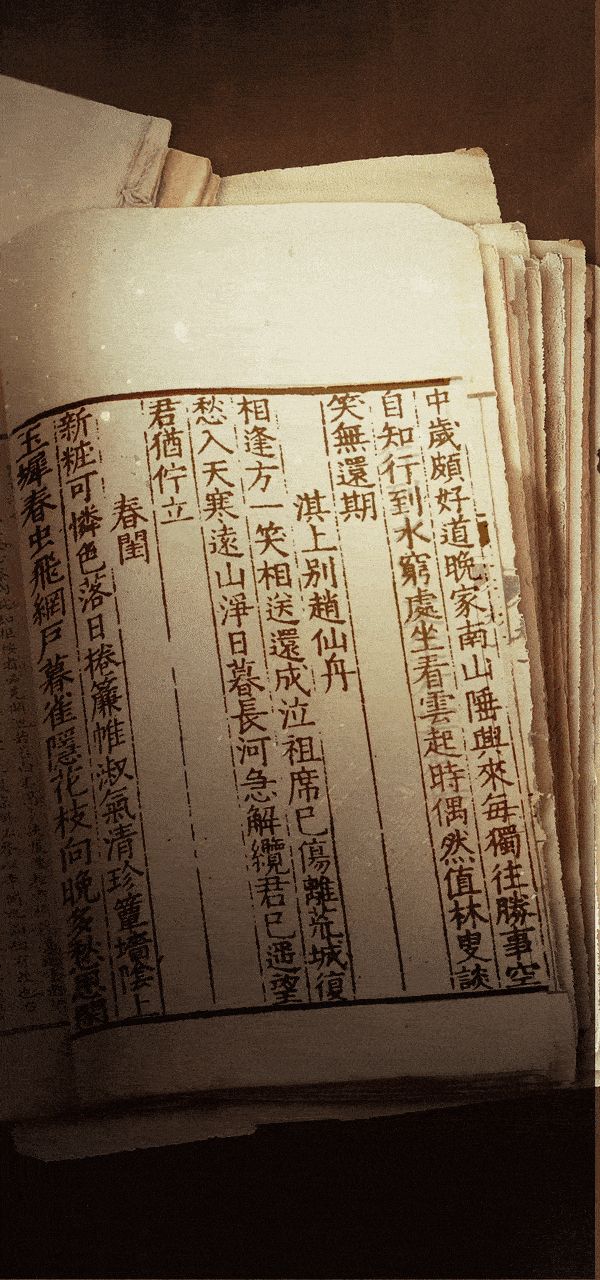 中歲頗好道晚家南山陲興來每獨往勝事空
自知行到水窮處坐看雲起時偶然值林叟談
笑無還期
淇上別趙仙舟
相逢方一笑相送還成泣祖席巳傷離荒城復
愁入天寒遠山淨日暮長河急解纜君巳遥望
君猶佇立
春閨
新粧可憐色落日捲簾帷淑氣清珍簟墻陰上
玉墀春虫飛網戶暮雀隱花枝向晚多愁思